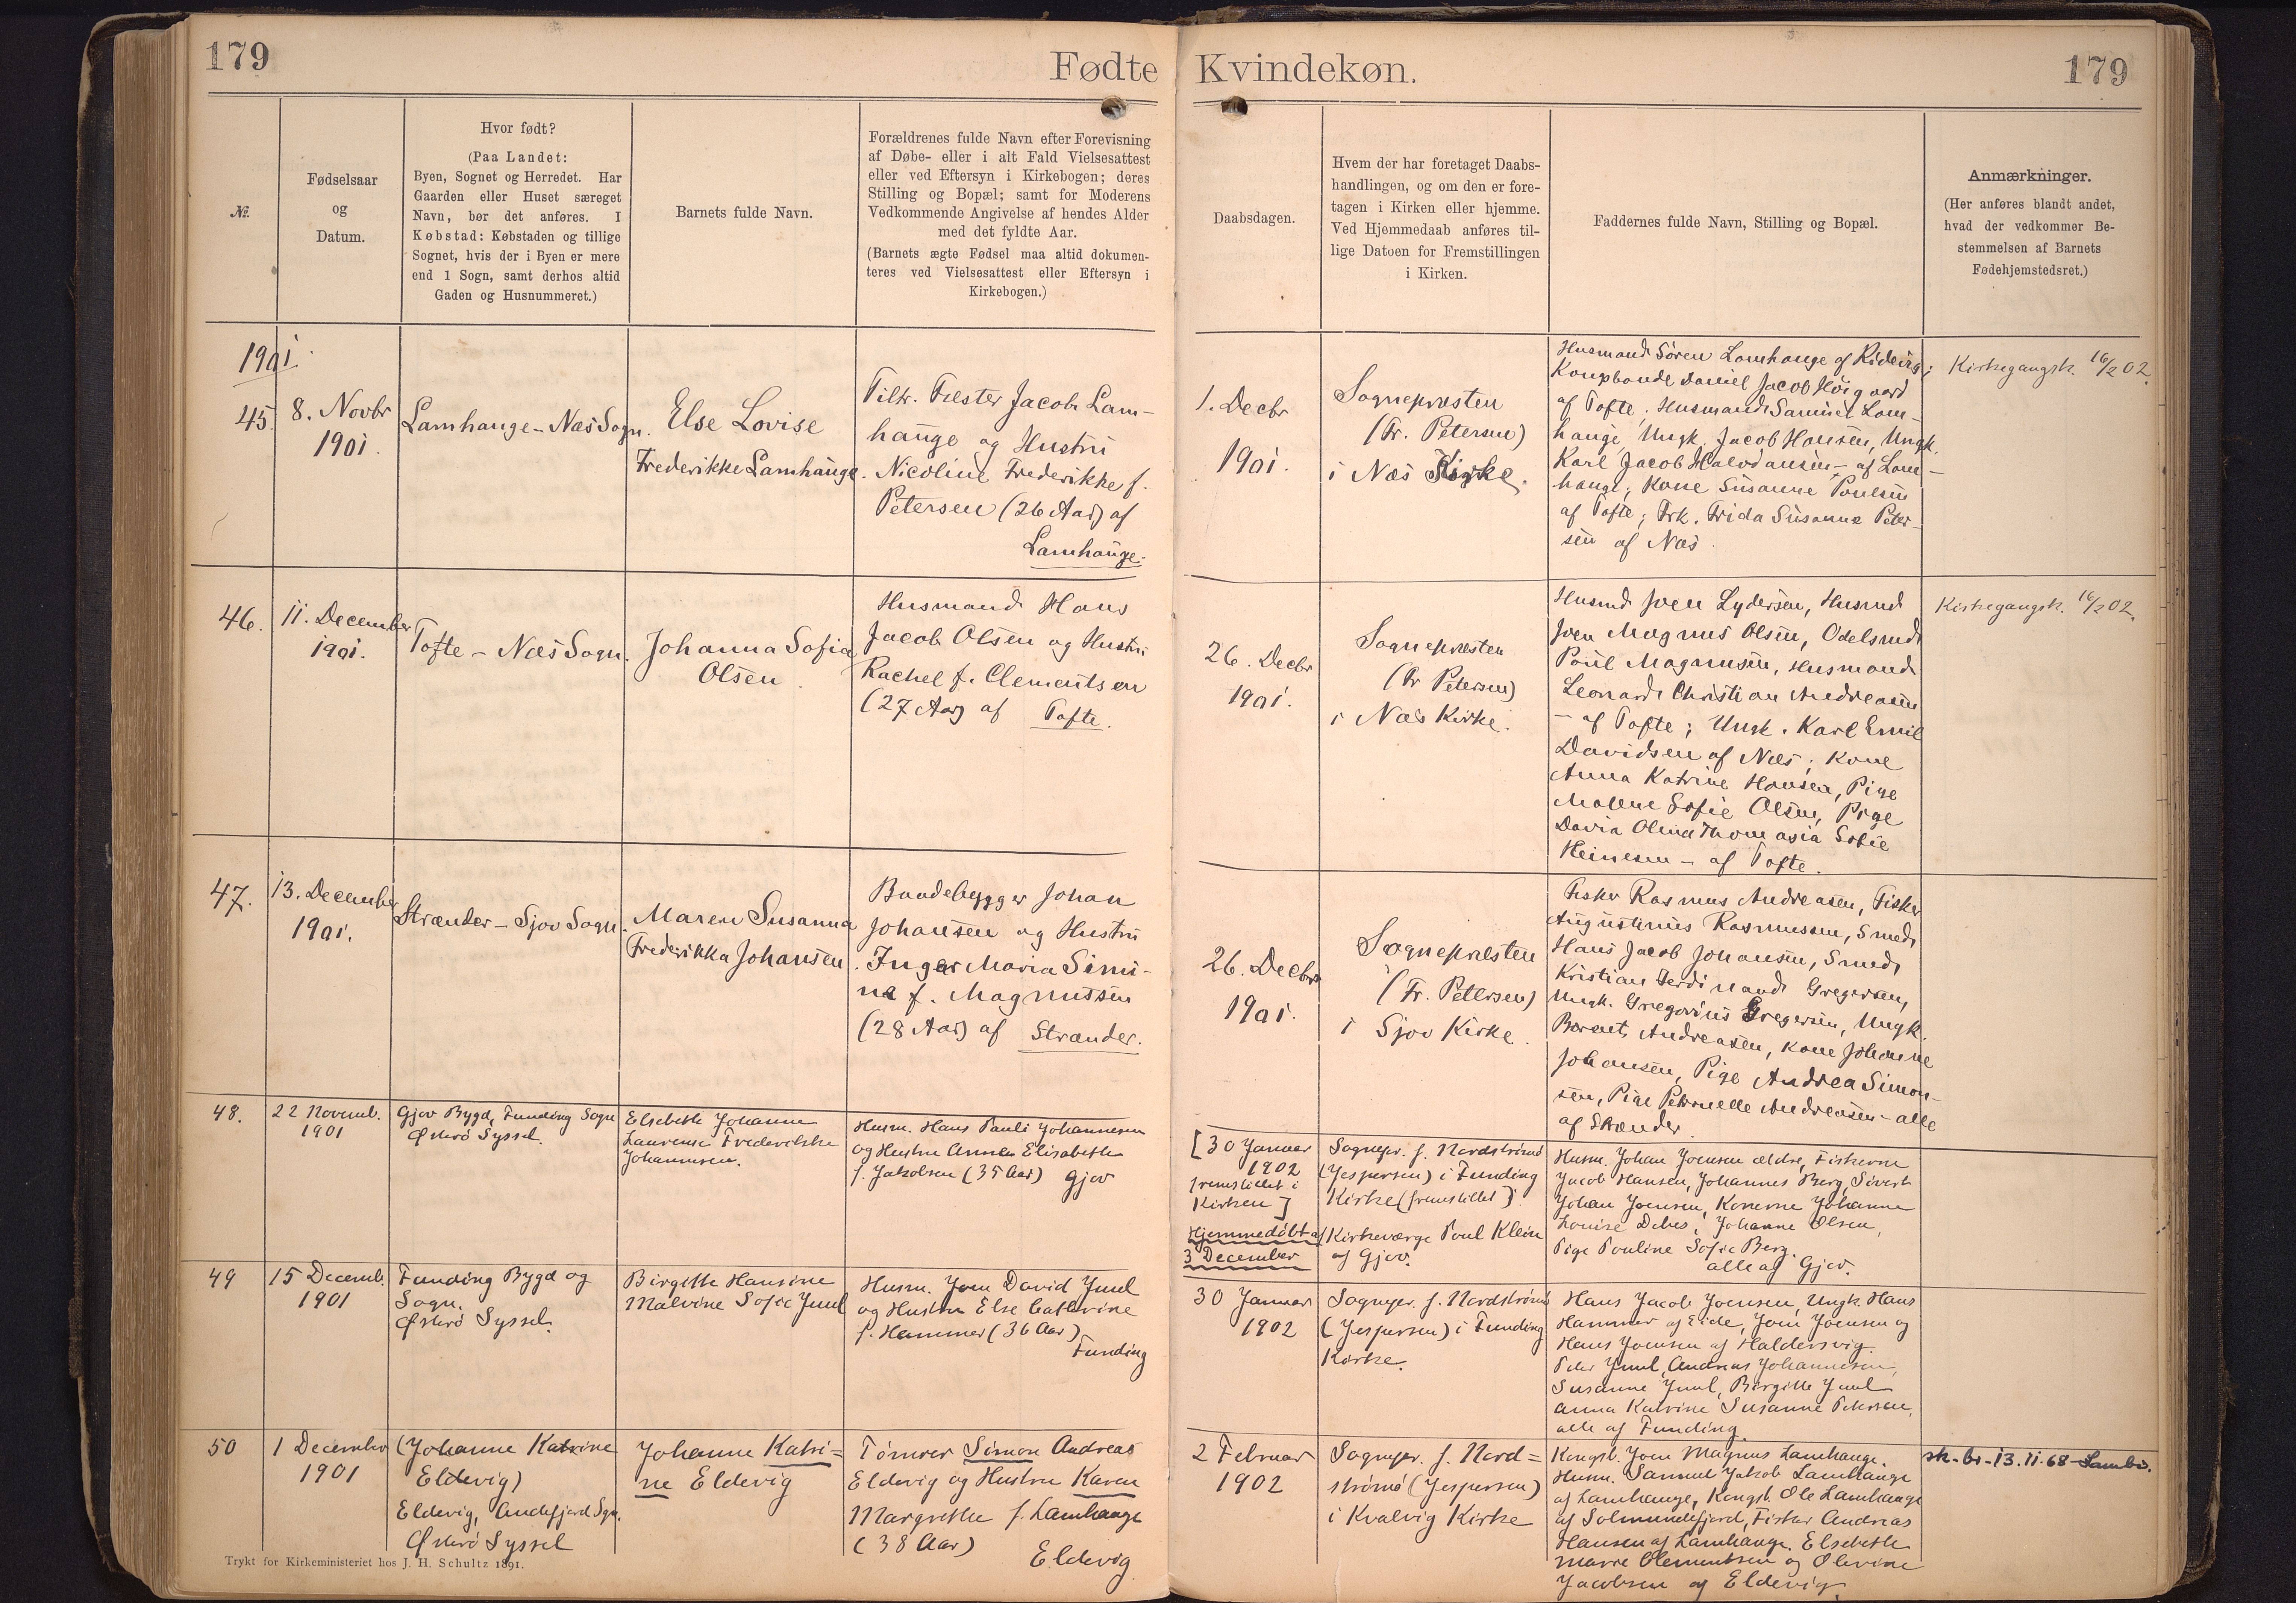 179
Fødte
Kvindekøn.
179
Nr.
Fødselsaar
og
Datum.
Hvor født?
(Paa Landet:
Byen, Sognet og Herredet. Har
Gaarden eller Huset særeget
Navn, bør det anføres. I
Købstad: Købstaden og tillige
Sognet, hvis der i Byen er mere
end 1 Sogn, samt derhos altid
Gaden og Husnummeret.)
Barnets fulde Navn.
Forældrenes fulde Navn efter Forevisning
af Døbe- eller i alt Fald Vielsesattest
eller ved Eftersyn i Kirkebogen; deres
Stilling og Bopæl; samt for Moderens
Vedkommende Angivelse af hendes Alder
med det fyldte Aar.
(Barnets ægte Fødsel maa altid dokumen-
teres ved Vielsesattest eller Eftersyn i
Kirkebogen.)
Daabsdagen.
Hvem der har foretaget Daabs-
handlingen, og om den er fore-
tagen i Kirken eller hjemme.
Ved Hjemmedaab anføres til-
lige Datoen for Fremstillingen
i Kirken.
Faddernes fulde Navn, Stilling og Bopæl.
Anmærkninger.
(Her anføres blandt andet,
hvad der vedkommer Be-
stemmelsen af Barnets
Fødehjemstedsret.)
1901.
45.
8. Novbr
1901.
Lamhauge - Næs Sogn.
Else Lovise
Frederikke Lamhauge.
Fæster Jacob Lam-
hauge og Hustru
Nicoline Frederikke f.
Petersen (26 Aar) af
Lamhauge.
1. Decbr
1901.
Sognepræsten
(Fr. Petersen)
i Næs Kirke.
Husmand Søren Lamhauge af
Daniel Jacob Høigaard
af Tofte. Husmand Samuel Lam-
hauge, Ungk. Jacob Hansen, Ungk.
Karl Jacob Halvdansen - af Lam-
hauge; Kone Susanne Poulsen
af Tofte; Frk. Frida Susanne Peter-
sen af Næs.
Kirkegangsk. 16/2 02.
46.
11. December
1901.
Tofte - Næs Sogn.
Johanna Sofia
Olsen.
Husmand Hans
Jacob Olsen og Hustru
Rachel f. Clementsen
(27 Aar) af Tofte.
26. Decbr
1901.
Sognepræsten
(Fr Petersen)
i Næs Kirke.
Husmd Joen Lydersen, Husmd
Joen Magnus Olsen, Odelsmd
Poul Magnusen, Husmand
Leonard Christian Andreasen
- af Tofte; Ungk. Karl Emil
Davidsen af Næs; Kone
Anna Katrine Hansen, Pige
Malene Sofie Olsen, Pige
Davia Olina Thomasia Sofie
Heinesen - af Tofte.
Kirkegangsk. 16/2 02.
47.
13. December
1901.
Strænder - Sjov Sogn.
Maren Susanna
Frederikka Johansen.
Baadebygger Johan
Johansen og Hustru
Inger Maria Simi-
na f. Magnussen
(28 Aar) af Strænder.
26. Decbr
1901.
Sognepræsten
(Fr. Petersen)
i Sjov Kirke.
Fisker Rasmus Andreasen, Fisker
Augustinus Rasmussen, Smed
Hans Jacob Johansen, Smed
Kristian Ferdinand Gregersen,
Ungk. Gregorius Gregersen, Ungk.
Berent Andreasen, Kone Johanne
Johansen, Pige Andrea Simon-
sen, Pige Petronelle Andreasen - alle
af Strænder.
48.
22 Novemb.
1901
Gjov Bygd, Funding Sogn
Østerø Syssel.
Elsebeth Johanne
Laurense Frederikke
Johannesen.
Husm. Hans Pauli Johannesen
og Hustru Anna Elisabeth
f. Jakobsen (35 Aar) Gjov
[30 Januar
1902
fremstillet i
Kirken]
Hjemmedøbt af
3 December
Sognepr. f. Nordstrømø
(Jespersen) i Funding
Kirke (fremstillet).
Kirkeværge Poul Klein
af Gjov.
Husm. Johan Joensen ældre, Fiskerne
Jacob Hansen, Johannes Berg, Sivert
Johan Joensen, Konerne Johanne
Louise Debes, Johanne Olsen,
Pige Pouline Sofie Berg.
alle af Gjov.
49
15 Decemb.
1901
Funding Bygd og
Sogn.
Østerø Syssel.
Birgitte Hansine
Malvine Sofie Juul
Husm. Joen David Juul
og Hustru Else Cathrine
f. Hammer (36 Aar)
Funding
30 Januar
1902
Sognepr. f. Nordstrømø
(Jespersen) i Funding
Kirke.
Hans Jacob Joensen, Ungk. Hans
Hammer af Eide, Joen Joensen og
Hans Joensen af Haldersvig.
Peter Juul, Andreas Johannesen,
Susanne Juul, Birgitte Juul
Anna Katrine Susanne Petersen,
alle af Funding.
50
1 December
1901
(Johanne Katrine
Eldevig)
Eldevig, Andefjord Sgn.
Østerø Syssel
Johanne Katri=
ne Eldevig
Tømrer Simon Andreas
Eldevig og Hustru Karen
Margrethe f. Lamhauge
(38 Aar)
Eldevig
2 Februar
1902
Sognepr. f. Nord=
strømø (Jespersen)
i Kvalvig Kirke
Kongsb. Joen Magnus Lamhauge.
Husm. Samuel Jakob Lamhauge
af Lamhauge, Kongsb. Ole Lamhauge
af Solmundefjord, Fisker Andreas
Hansen af Lamhauge. Elsebeth
Marie Clementsen og Olevine
Jacobsen af Eldevig.
sk. br. 13.11.68
Trykt for Kirkeministeriet hos J. H. Schultz 1891.